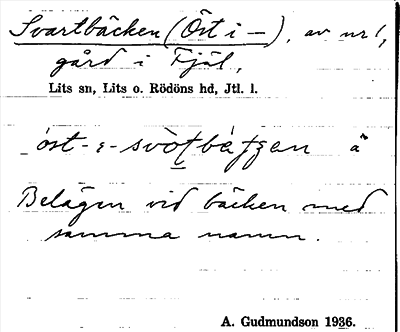 Svartbäcken (Öst i –), av nr 1,
gård i Fjäl,
Lits sn, Lits o. Rödöns hd, Jtl. l.
öst- ä
Belägen vid bäcken med
samma namn.
A. Gudmundson 1936.